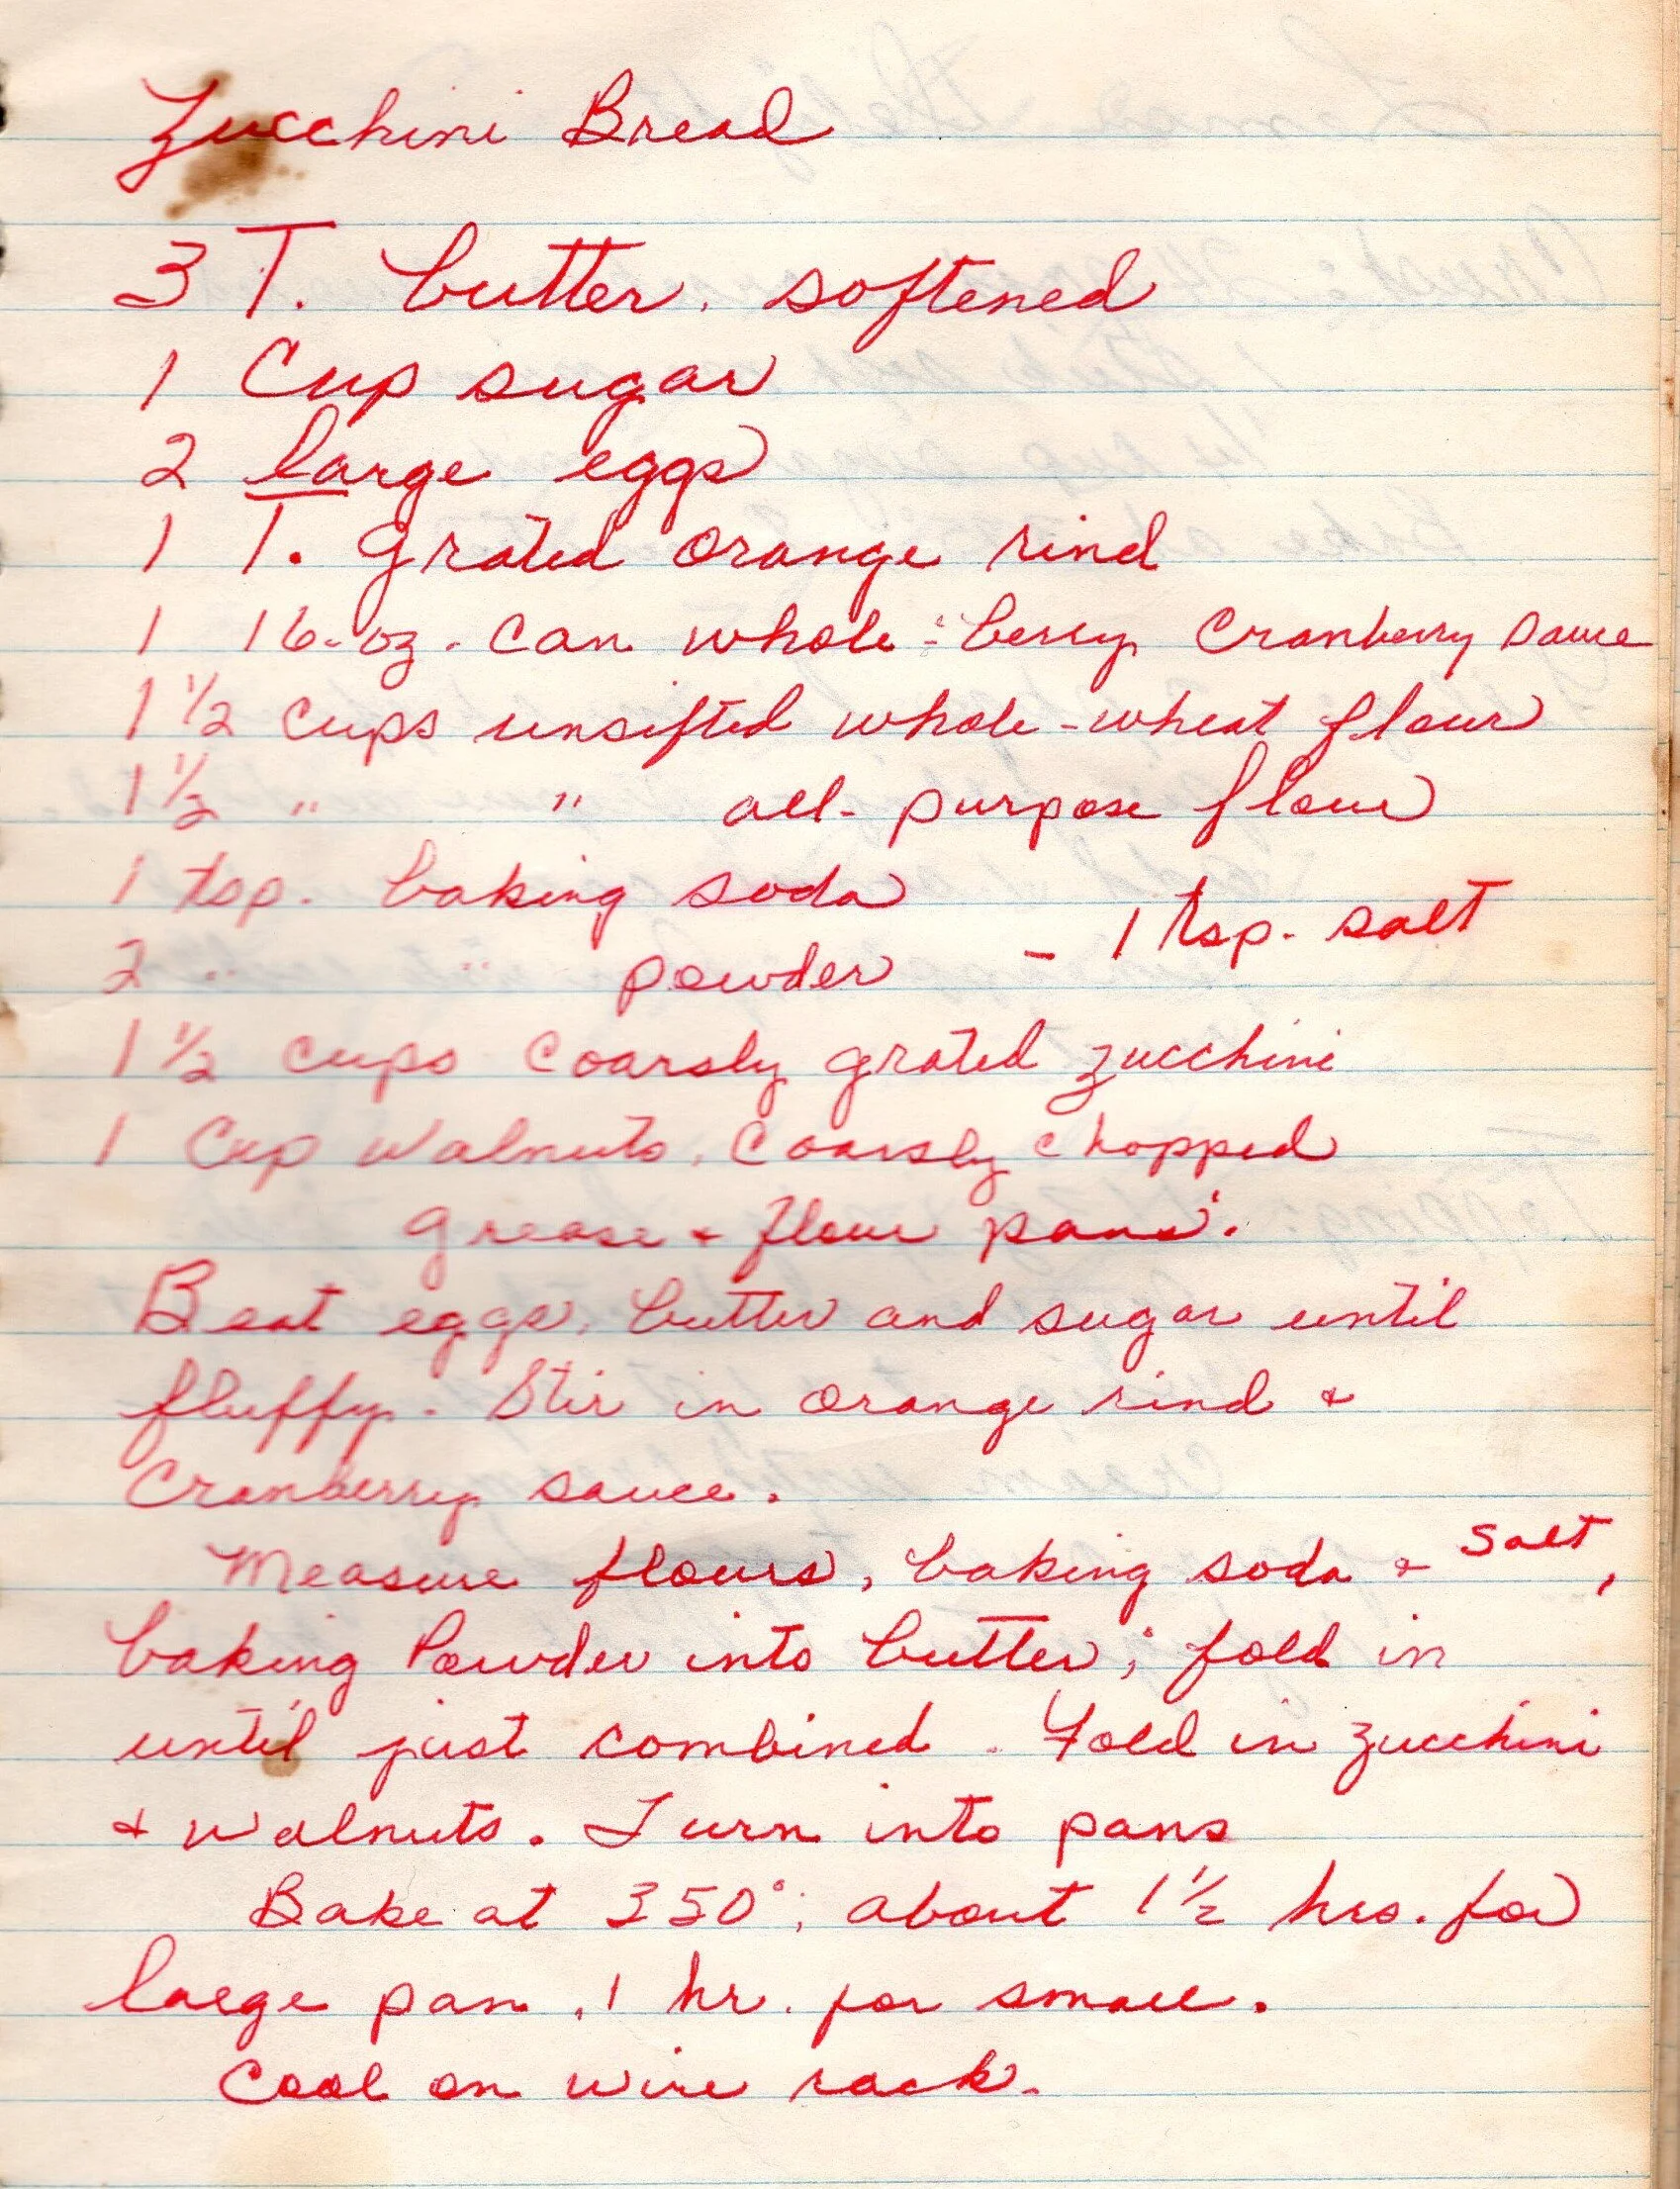 Zucchini Bread
3 T. butter, softened
1 Cup sugar
2 large eggs
1 T. grated orange rind
1 16-oz. can whole-berry Cranberry sauce
1 1/2 cups unsifted whole-wheat flour
1 1/2 " " all-purpose flour
1 tsp. baking soda
2 " " powder - 1 tsp. salt
1 1/2 cups Coarsly grated zucchini
1 Cup Walnuts, Coarsly chopped
Grease + flour pans.
Beat eggs, butter and sugar until
fluffy. Stir in orange rind +
Cranberry sauce.
Measure flours, baking soda + salt,
baking Powder into butter; fold in
until just combined. Fold in zucchini
+ walnuts. Turn into pans
Bake at 350°; about 1 1/2 hrs. for
large pan, 1 hr. for small.
Cool on wire rack.